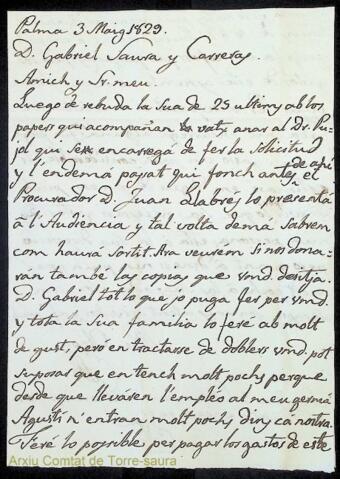 Palma 3 Maig 1829.
D. Gabriel Saura y Carreras
Amich y Sr. meu.
Luego de rebuda la sua de 25 ultim ab los
papers qui acompañan vatx anar al Dr. Pu-
jol qui se encarregá de fer la solicitud
y l'endemá pasat qui fonch antes de ahí el
Procurador D. Juan Llabrés lo presentá
á l'Audiencia y tal volta demá sabrem
com haurá sortit. Ara veurém si nos dona-
rán també las copias que vmd desitja.
D. Gabriel tot lo que jo puga fer per vmd
y tota la sua familia lo feré ab molt
de gust, peró en tractarse de doblers vmd. pot
suposar que en tench molt pochs perque
desde que llevaren l'empleo al meu germá
Agustí n'entran molt pochs dins ca nostra.
Feré lo posible per pagar los gastos de este
Arxiu Comtat de Torre-saura